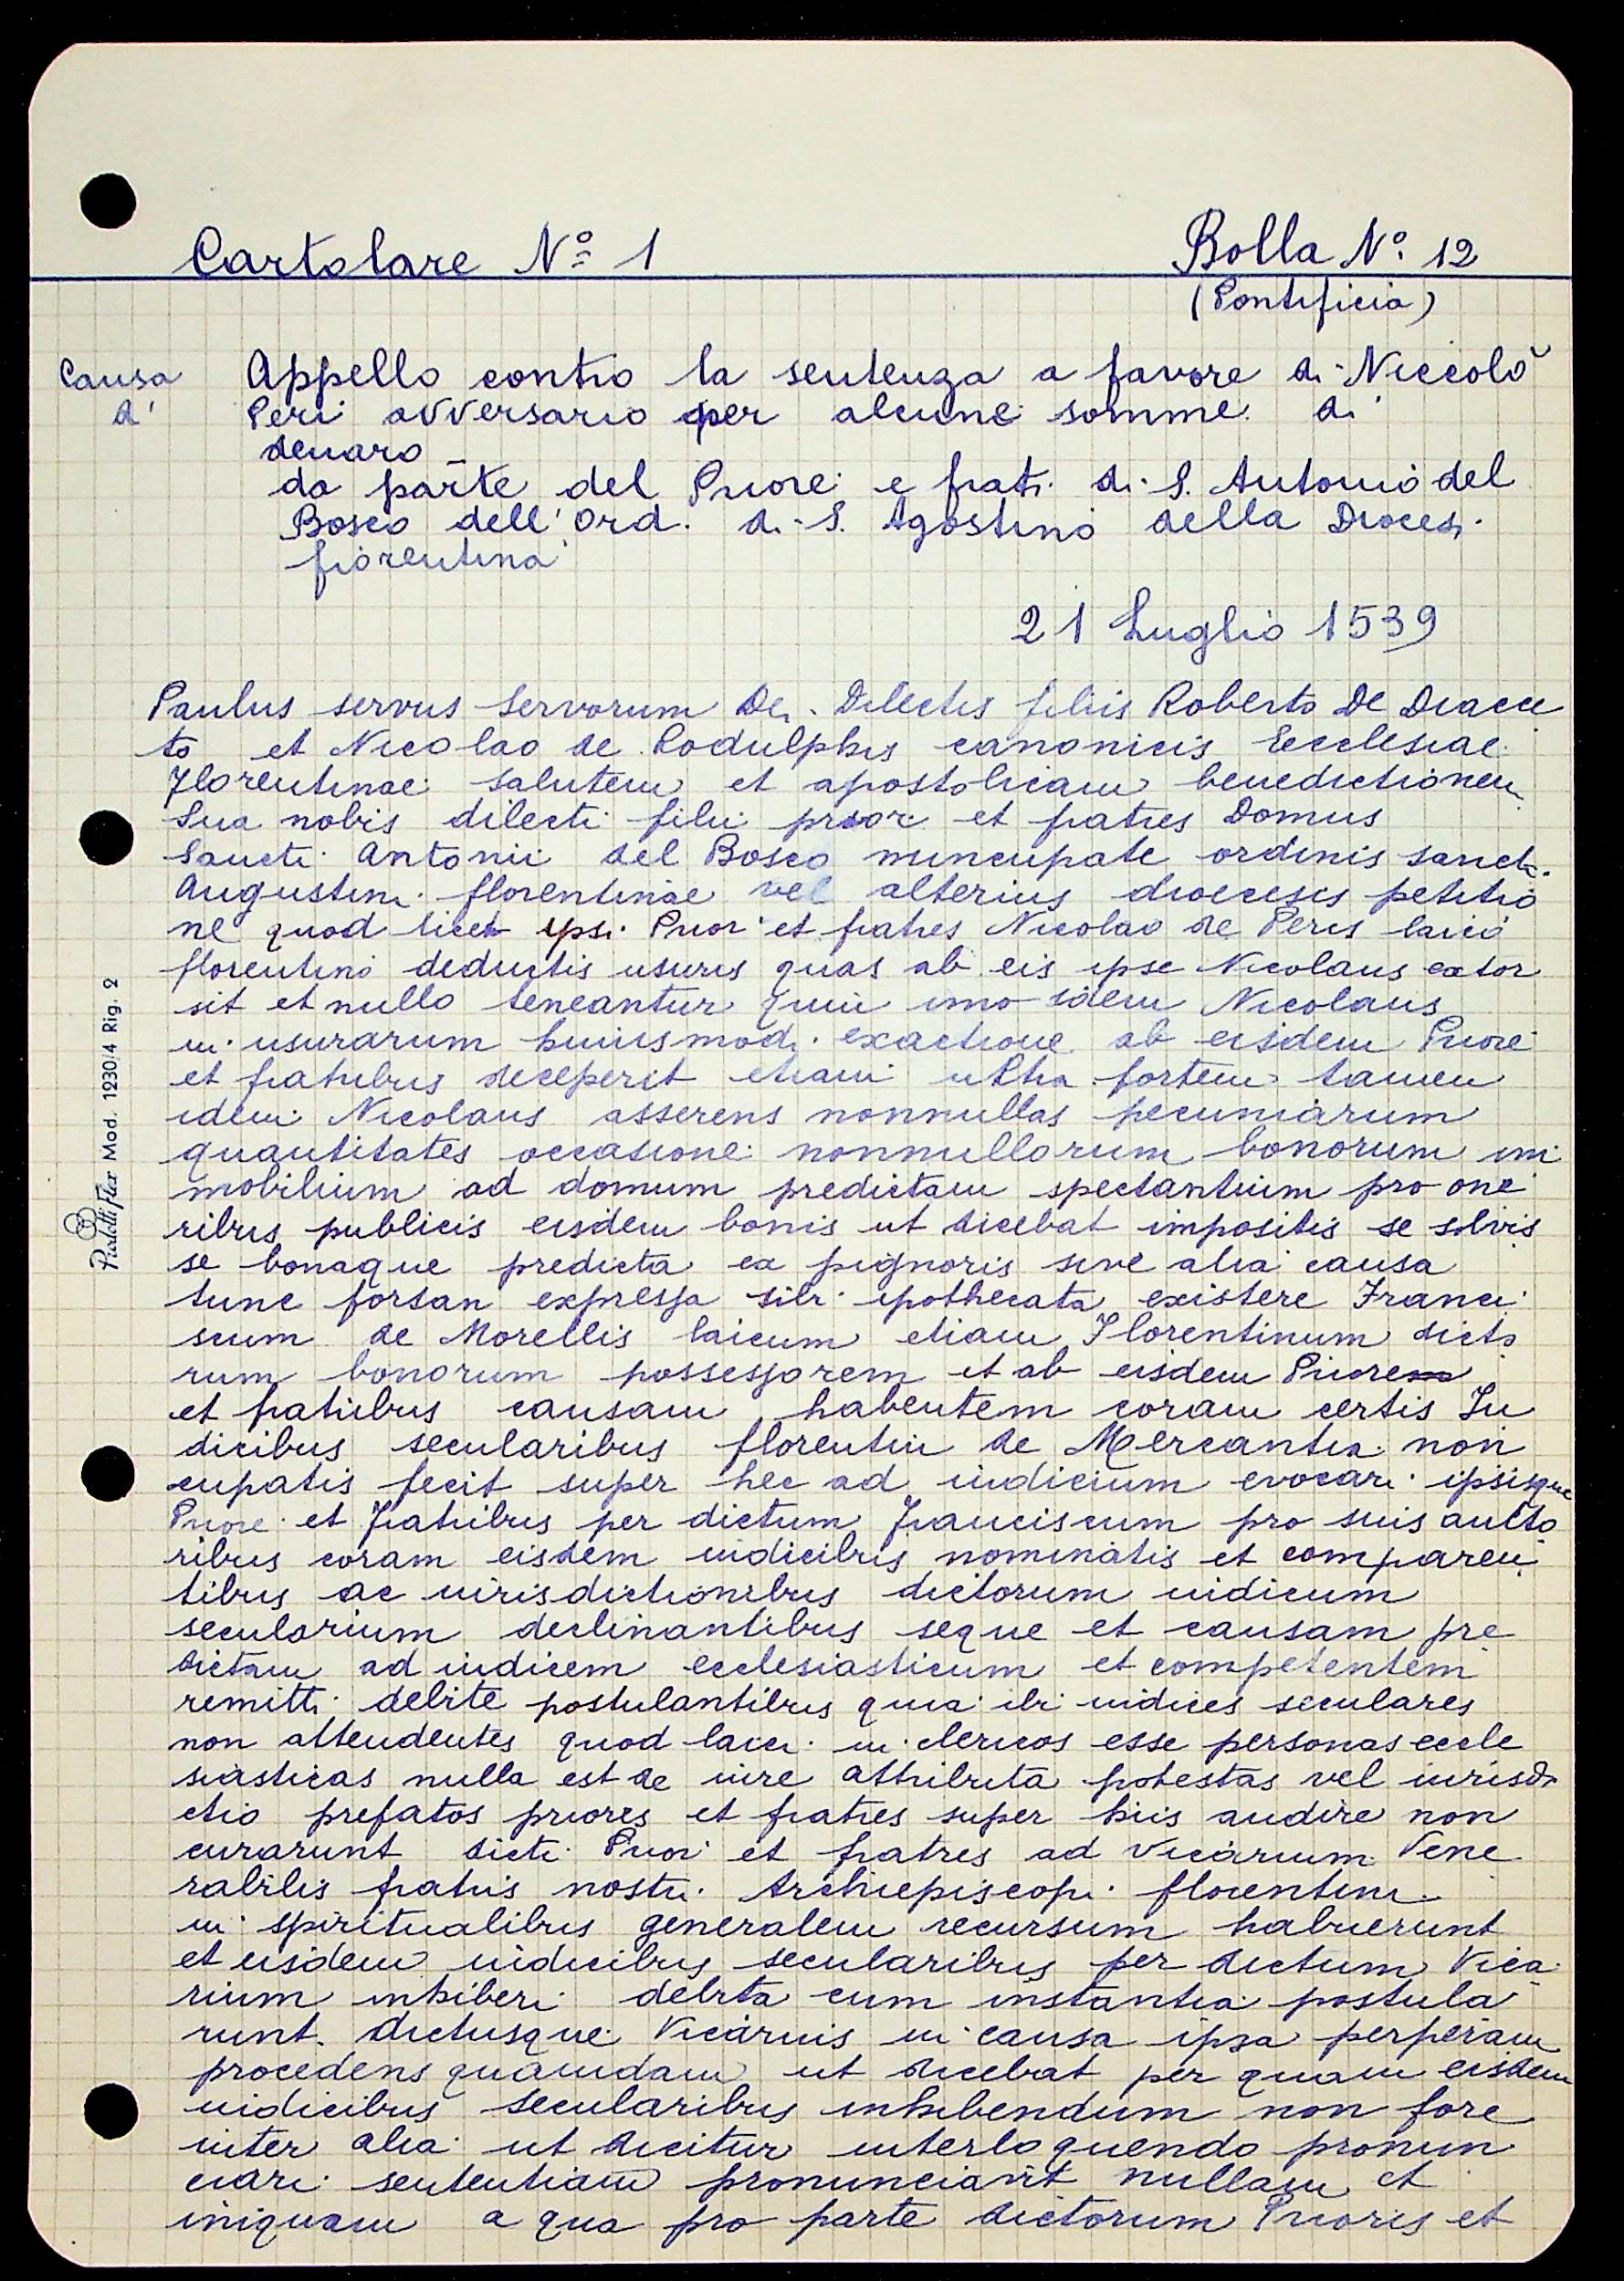 Cartolare Nº 1
Bolla Nº 12
(Pontificia)
Causa di
Appello contro la sentenza a favore di Niccolò
Peri avversario per alcune somme di
denaro
da parte del Priore e frati di S. Antonio del
Bosco dell'Ord. di S. Agostino della Diocesi
fiorentina
21 Luglio 1539
Paulus servus servorum Dei. Dilectis filiis Roberto De Diacce
to et Nicolao de Rodulphis canonicis Ecclesiae
Florentinae salutem et apostolicam benedictionem
Sua nobis dilecti filii prior et fratres Domus
Sancti Antonii del Bosco nuncupate ordinis sancti
Augustini florentinae vel alterius diocesis petitio
ne quod licet ipsi Prior et fratres Nicolao de Peris laico
florentino deductis usuris quas ab eis ipse Nicolaus extor
sit et nullo teneantur quin imo idem Nicolaus
in usurarum huiusmodi exactione ab eisdem Priore
et fratribus deceperit etiam ultra fortem tamen
idem Nicolaus asserens nonnullas pecuniarum
quantitates occasione nonnullorum bonorum im
mobilium ad domum predictam spectantium pro one
ribus publicis eisdem bonis ut dicebat impositis se solvis
se bonaque predicta ex pignoris sive alia causa
tunc forsan expressa sibi ipothecata existere Franci
scum de Morellis laicum etiam Florentinum dicto
rum bonorum possessorem et ab eisdem Priore
et fratribus causam habentem coram certis Iu
dicibus secularibus florentin de Mercantia non
cupatis fecit super hec ad iudicium evocari ipsisque
Priore et Fratribus per dictum Franciscum pro suis aucto
ribus coram eisdem iudicibus nominatis et comparen
tibus ac iurisdictionibus dictorum iudicum
secularium declinantibus seque et causam pre
dictam ad iudicem ecclesiasticum et competentem
remitti debite postulantibus quia ibi iudices seculares
non attendentes quod laici in clericos esse personas eccle
siasticas nulla est de iure attributa potestas vel iurisdi
ctio prefatos priores et fratres super hiis audire non
curarunt dicti Prior et fratres ad Vicarium Vene
rabilis fratris nostri Archiepiscopi florentini
in spiritualibus generalem recursum habuerunt
et eisdem iudicibus secularibus per dictum Vica
rium inhiberi debita cum instantia postula
runt. dictusque Vicarius in causa ipsa perperam
procedens quamdam ut dicebat per quam eisdem
iudicibus secularibus inhibendum non fore
inter alia ut dicitur interloquendo pronun
ciari sententiam pronunciavit nullam et
iniquam a qua pro parte dictorum Prioris et
Pialetti Flex Mod. 1230/4 Rig. 2